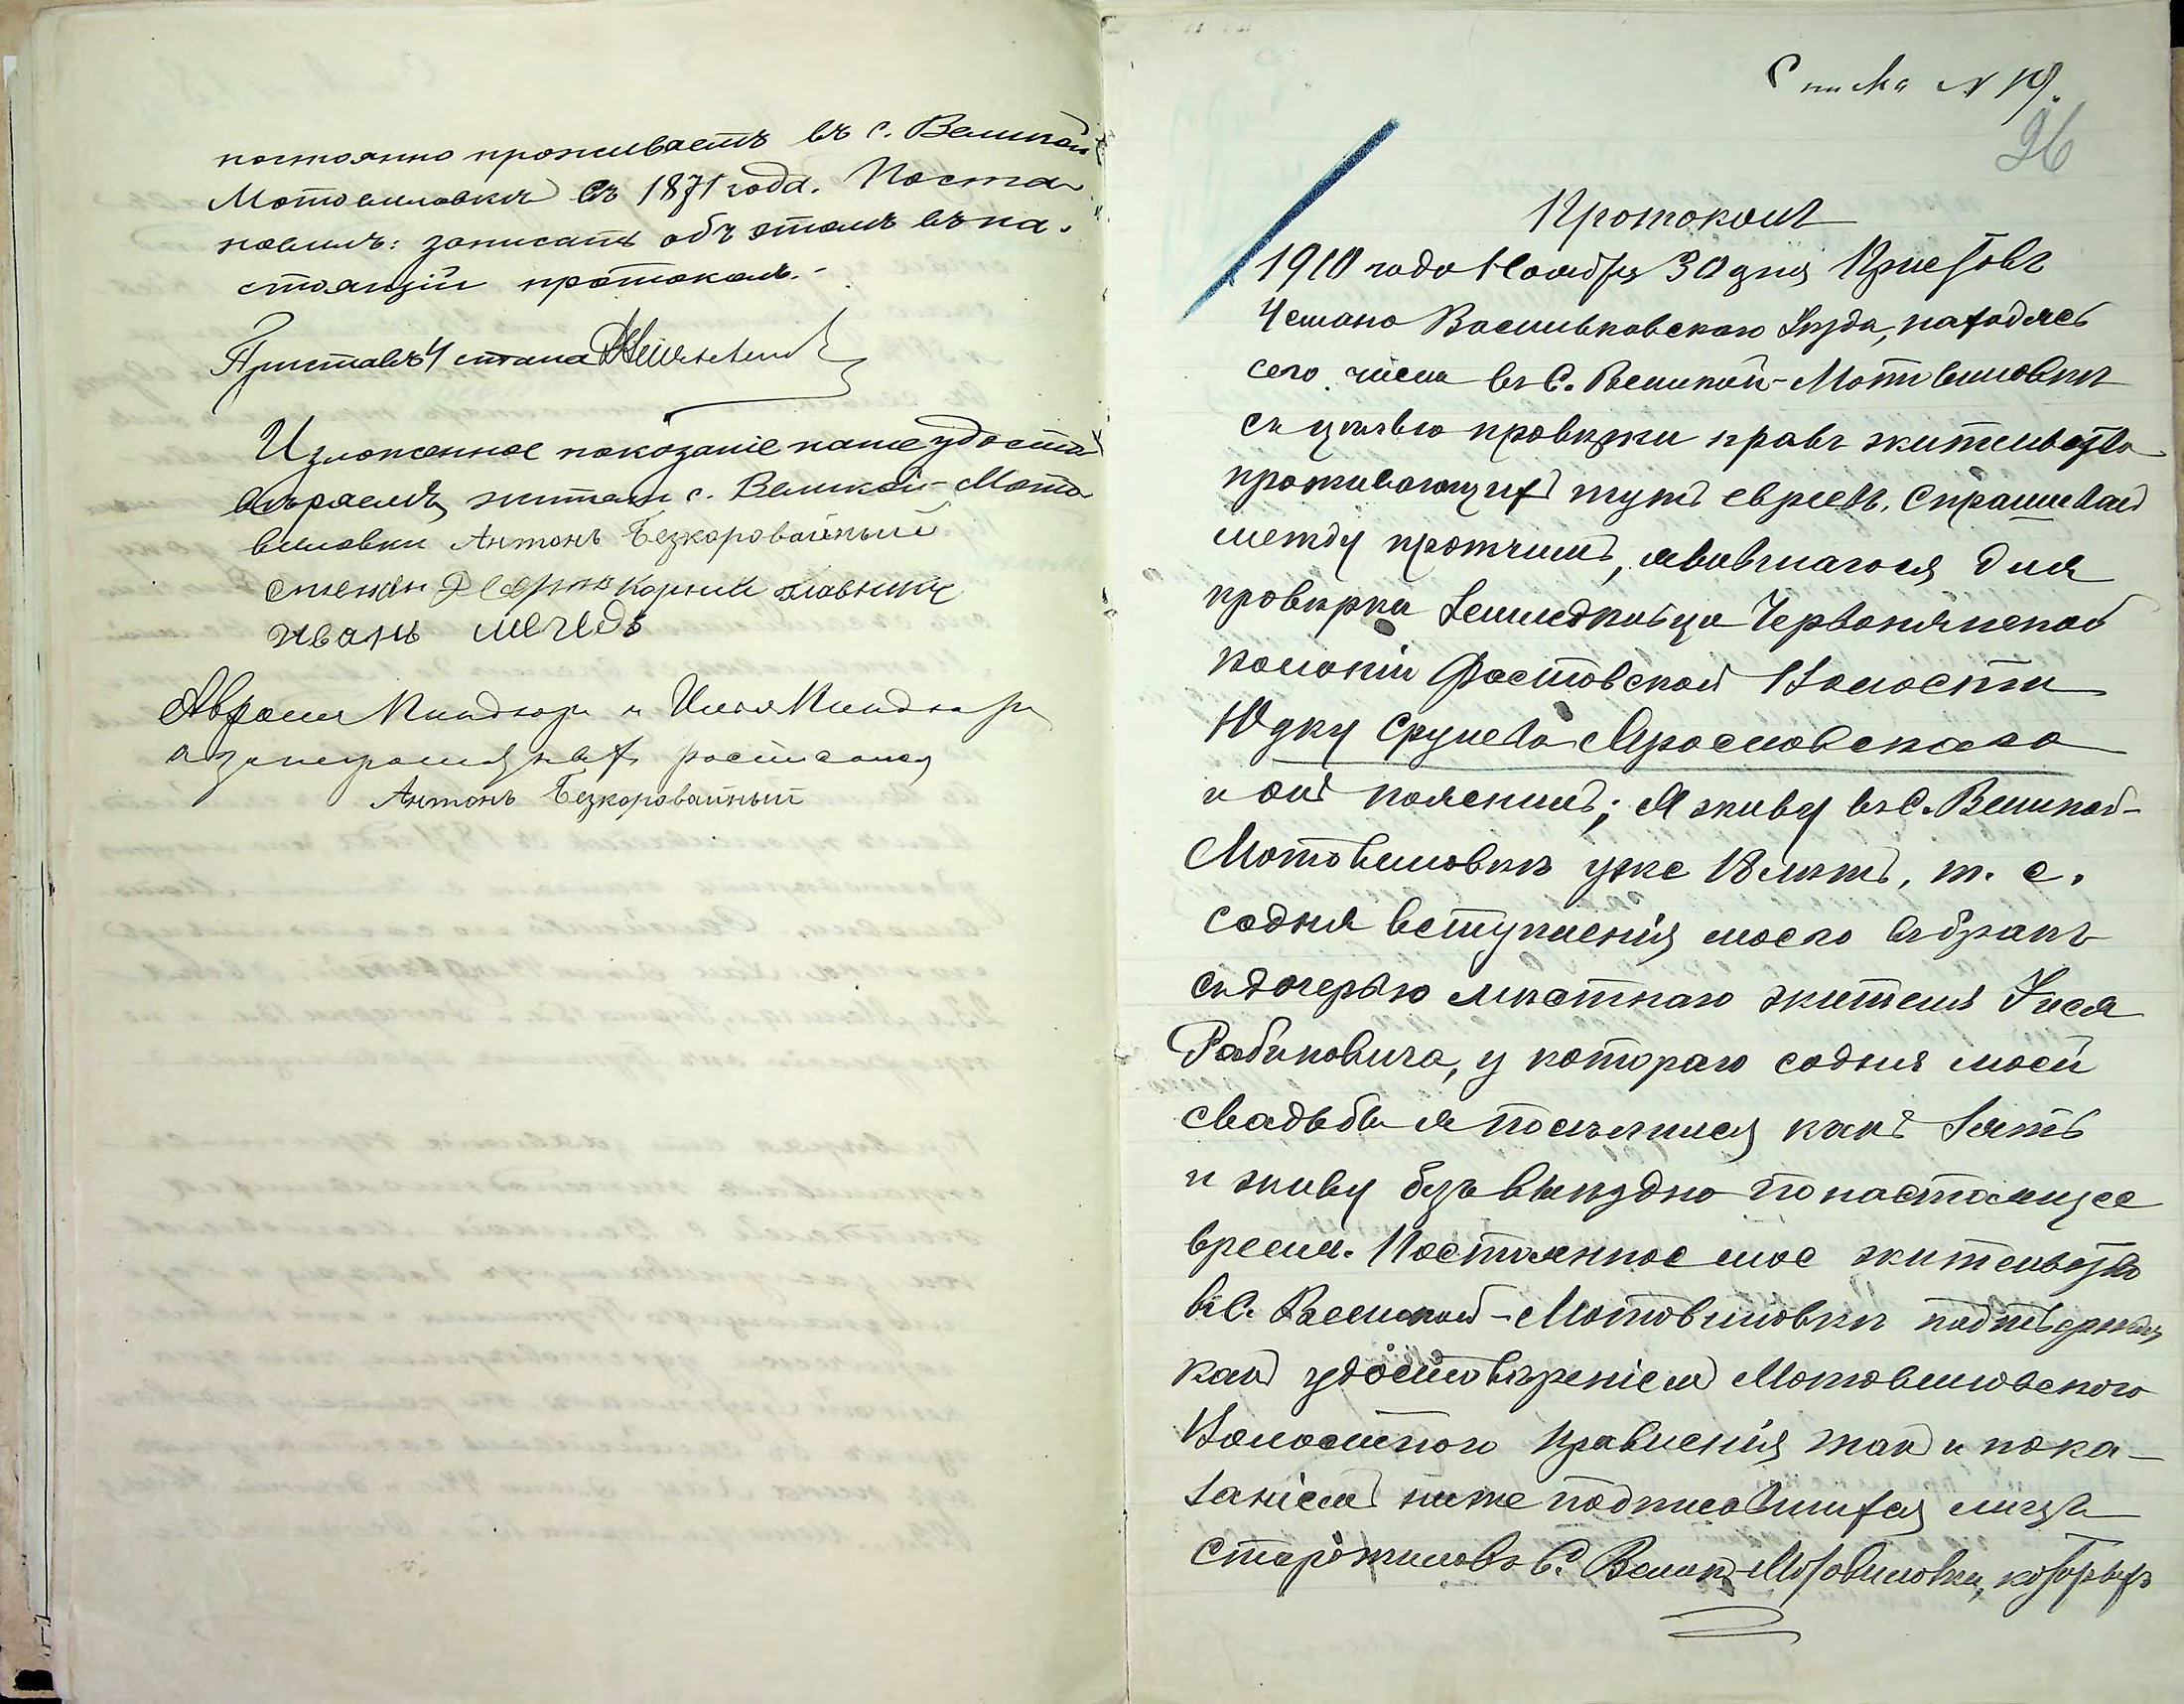 постоянно проживаетъ въ с. Великой
Мотовиловкѣ съ 1871 года. Поста-
новилъ: записать объ этомъ въ на-
стоящій протоколъ.-
Приставъ 4 стана
Изложенное показаніе наше удосто-
вѣряемъ, жители с. Великой-Мото-
виловки Антонъ Безкоровайный
Корній
Иванъ
Аврамъ и Илья
а за неграмотныхъ расписался
Антонъ Безкоровайный
Списка № 19.
26
Протоколъ
1910 года Ноября 30 дня Приставъ
4 стана Васильковскаго Уѣзда, находясь
сего числа въ С. Великой-Мотовиловкѣ
съ цѣлью провѣрки правъ жительства
проживающихъ тутъ евреевъ, спрашивалъ
между прочимъ, явившагося для
провѣрки Земледѣльца Червонянской
колоніи Фастовской Волости
Юдку Срулева Ярославскаго
и онъ пояснилъ; Я живу въ С. Великой-
Мотовиловкѣ уже 18 лѣтъ, т. е.
содня вступленія моего въ бракъ
съ дочерью мѣстнаго жителя
Рабиновича, у котораго содня моей
свадьбы я поселился какъ зять
и живу безъ выѣздно по настоящее
время. Постоянное мое жительство
въ С. Великой-Мотовиловкѣ подтвержд
какъ удостовѣреніемъ Мотовиловскаго
Волостного Правленія такъ и пока-
заніемъ ниже подписавшихся лицъ
старожиловъ С. Велик-Мотовиловки, которыхъ